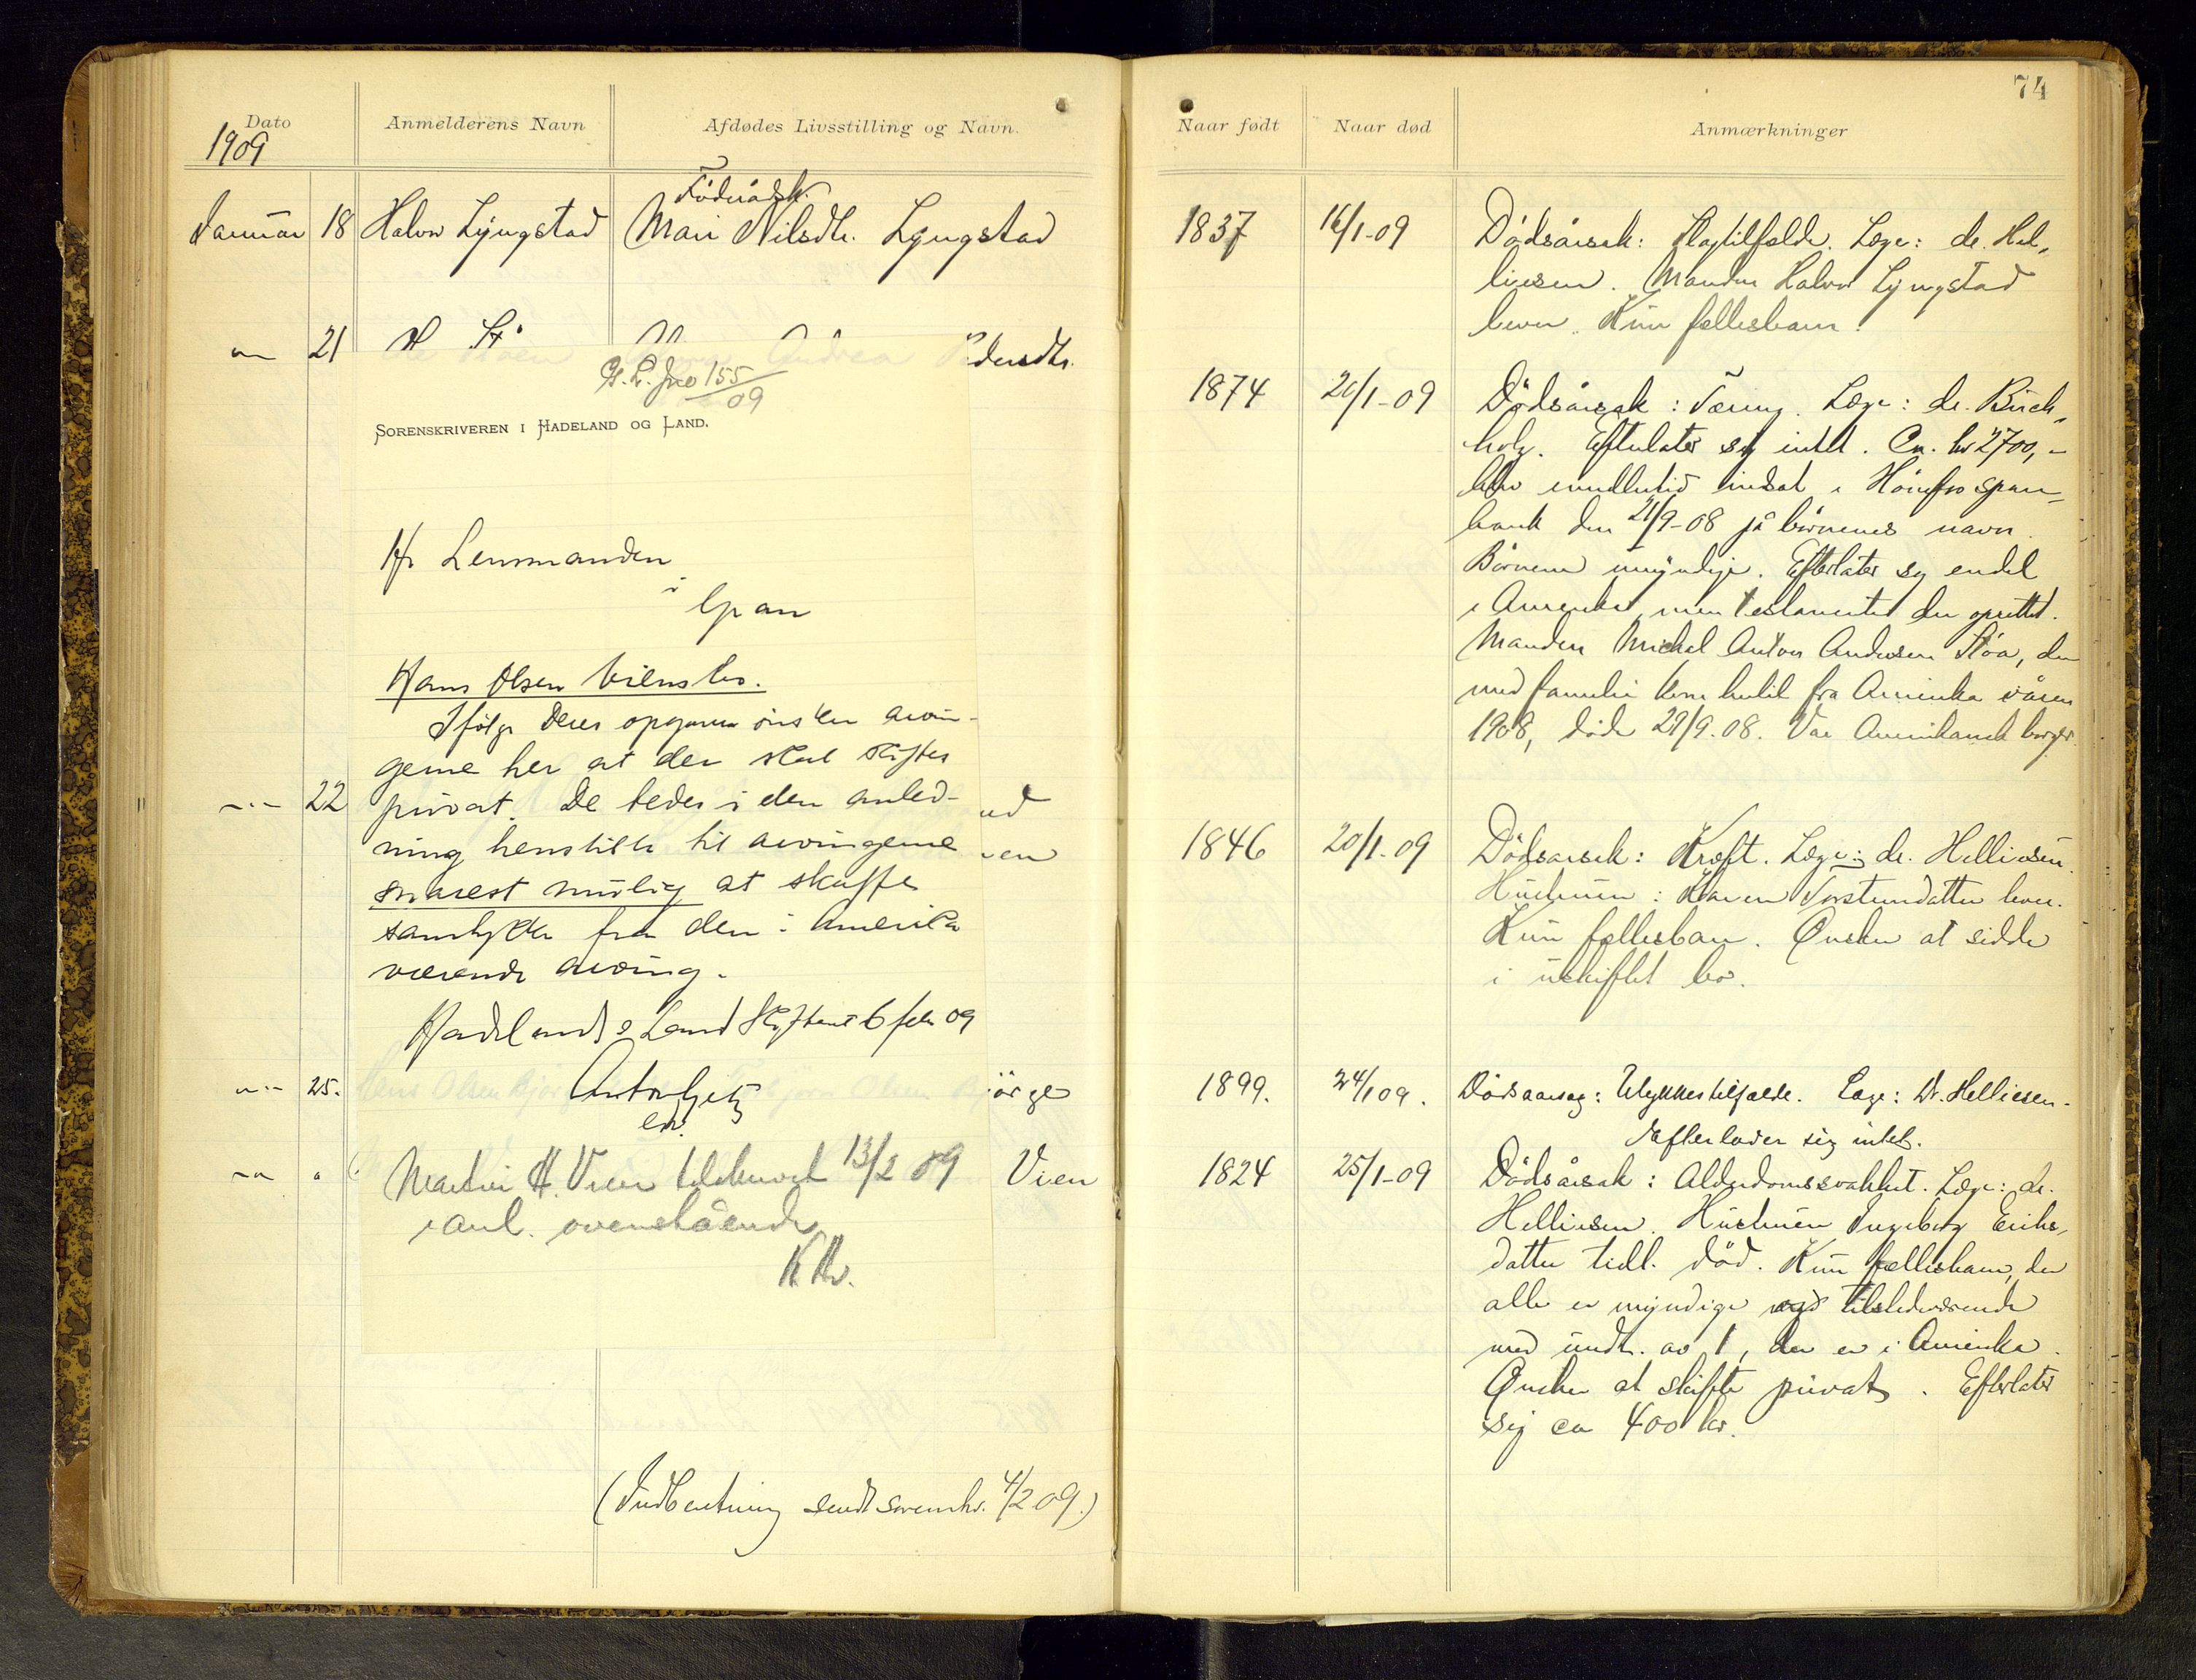 Dato
Anmelderens Navn
Afdødes Livsstilling og Navn.
1909
Föderådsk.
Januar 18 Halvor Lyngstad Mari Nilsdtr. Lyngstad
21
Andrea Pedersdtr.
G.L. Jno 155/09
SORENSKRIVEREN I HADELAND OG LAND.
Hr Lensmanden
i
Gran
Hans Olsen Viens bo.
Ifölge Deres opgave önsker arvin-
gerne her at der skal skiftes
22 privat. De bedes i den anled-
ning henstille til arvingerne
snarest mulig at skaffe
samtykke fra den i Amerika
værende arving.
Hadeland & Land Skifteret 6 febr 09
25. Hans Olsen Bjørge
Olsen Björge
Martin H. Vien tilskrevet 13/2 09
Vien
i anl. ovenstående
(Indberetning sendt sorenskr. 4/2 09.)
74
Naar født
Naar død
Anmærkninger
1837 16/1-09 Dödsårsak: Slagtilfælde. Læge: dr. Hel-
liesen. Manden Halvor Lyngstad
lever. Kun fællesbarn.
1874 20/1-09 Dödsårsak: Tæring. Læge: dr. Buch-
holz. Efterlater sig intet. Ca. kr 2700,-
blev imidlertid indsat i Hönefos spare-
bank den 21/9-08 på börnenes navn.
Börnene umyndige. Efterlater sig endel
i Amerika, men testamente der oprettet.
Manden Michal Anton Andersen Stöa, der
med familie kom hertil fra Amerika våren
1908, döde 29/9.08. Var Amerikansk borger.
1846 20/1-09 Dödsårsak: Kræft. Læge: dr. Helliesen.
Hustruen: Karen Torstensdatter lever.
Kun fællesbarn. Ønsker at sidde
i uskiftet bo.
1899. 24/1 09. Dödsaarsag: Ulykkestilfælde. Læge: Dr. Helliesen.
Efterlader sig intet.
1824 25/1-09 Dödsårsak: Alderdomssvakhet. Læge: dr.
Helliesen. Hustruen Ingeborg Eriks-
datter tidl. död. Kun fællesbarn, der
alle er myndige og tilstedeværende
med undt. av 1, der er i Amerika.
Ønsker at skifte privat. Efterlater
sig ca 400 kr.